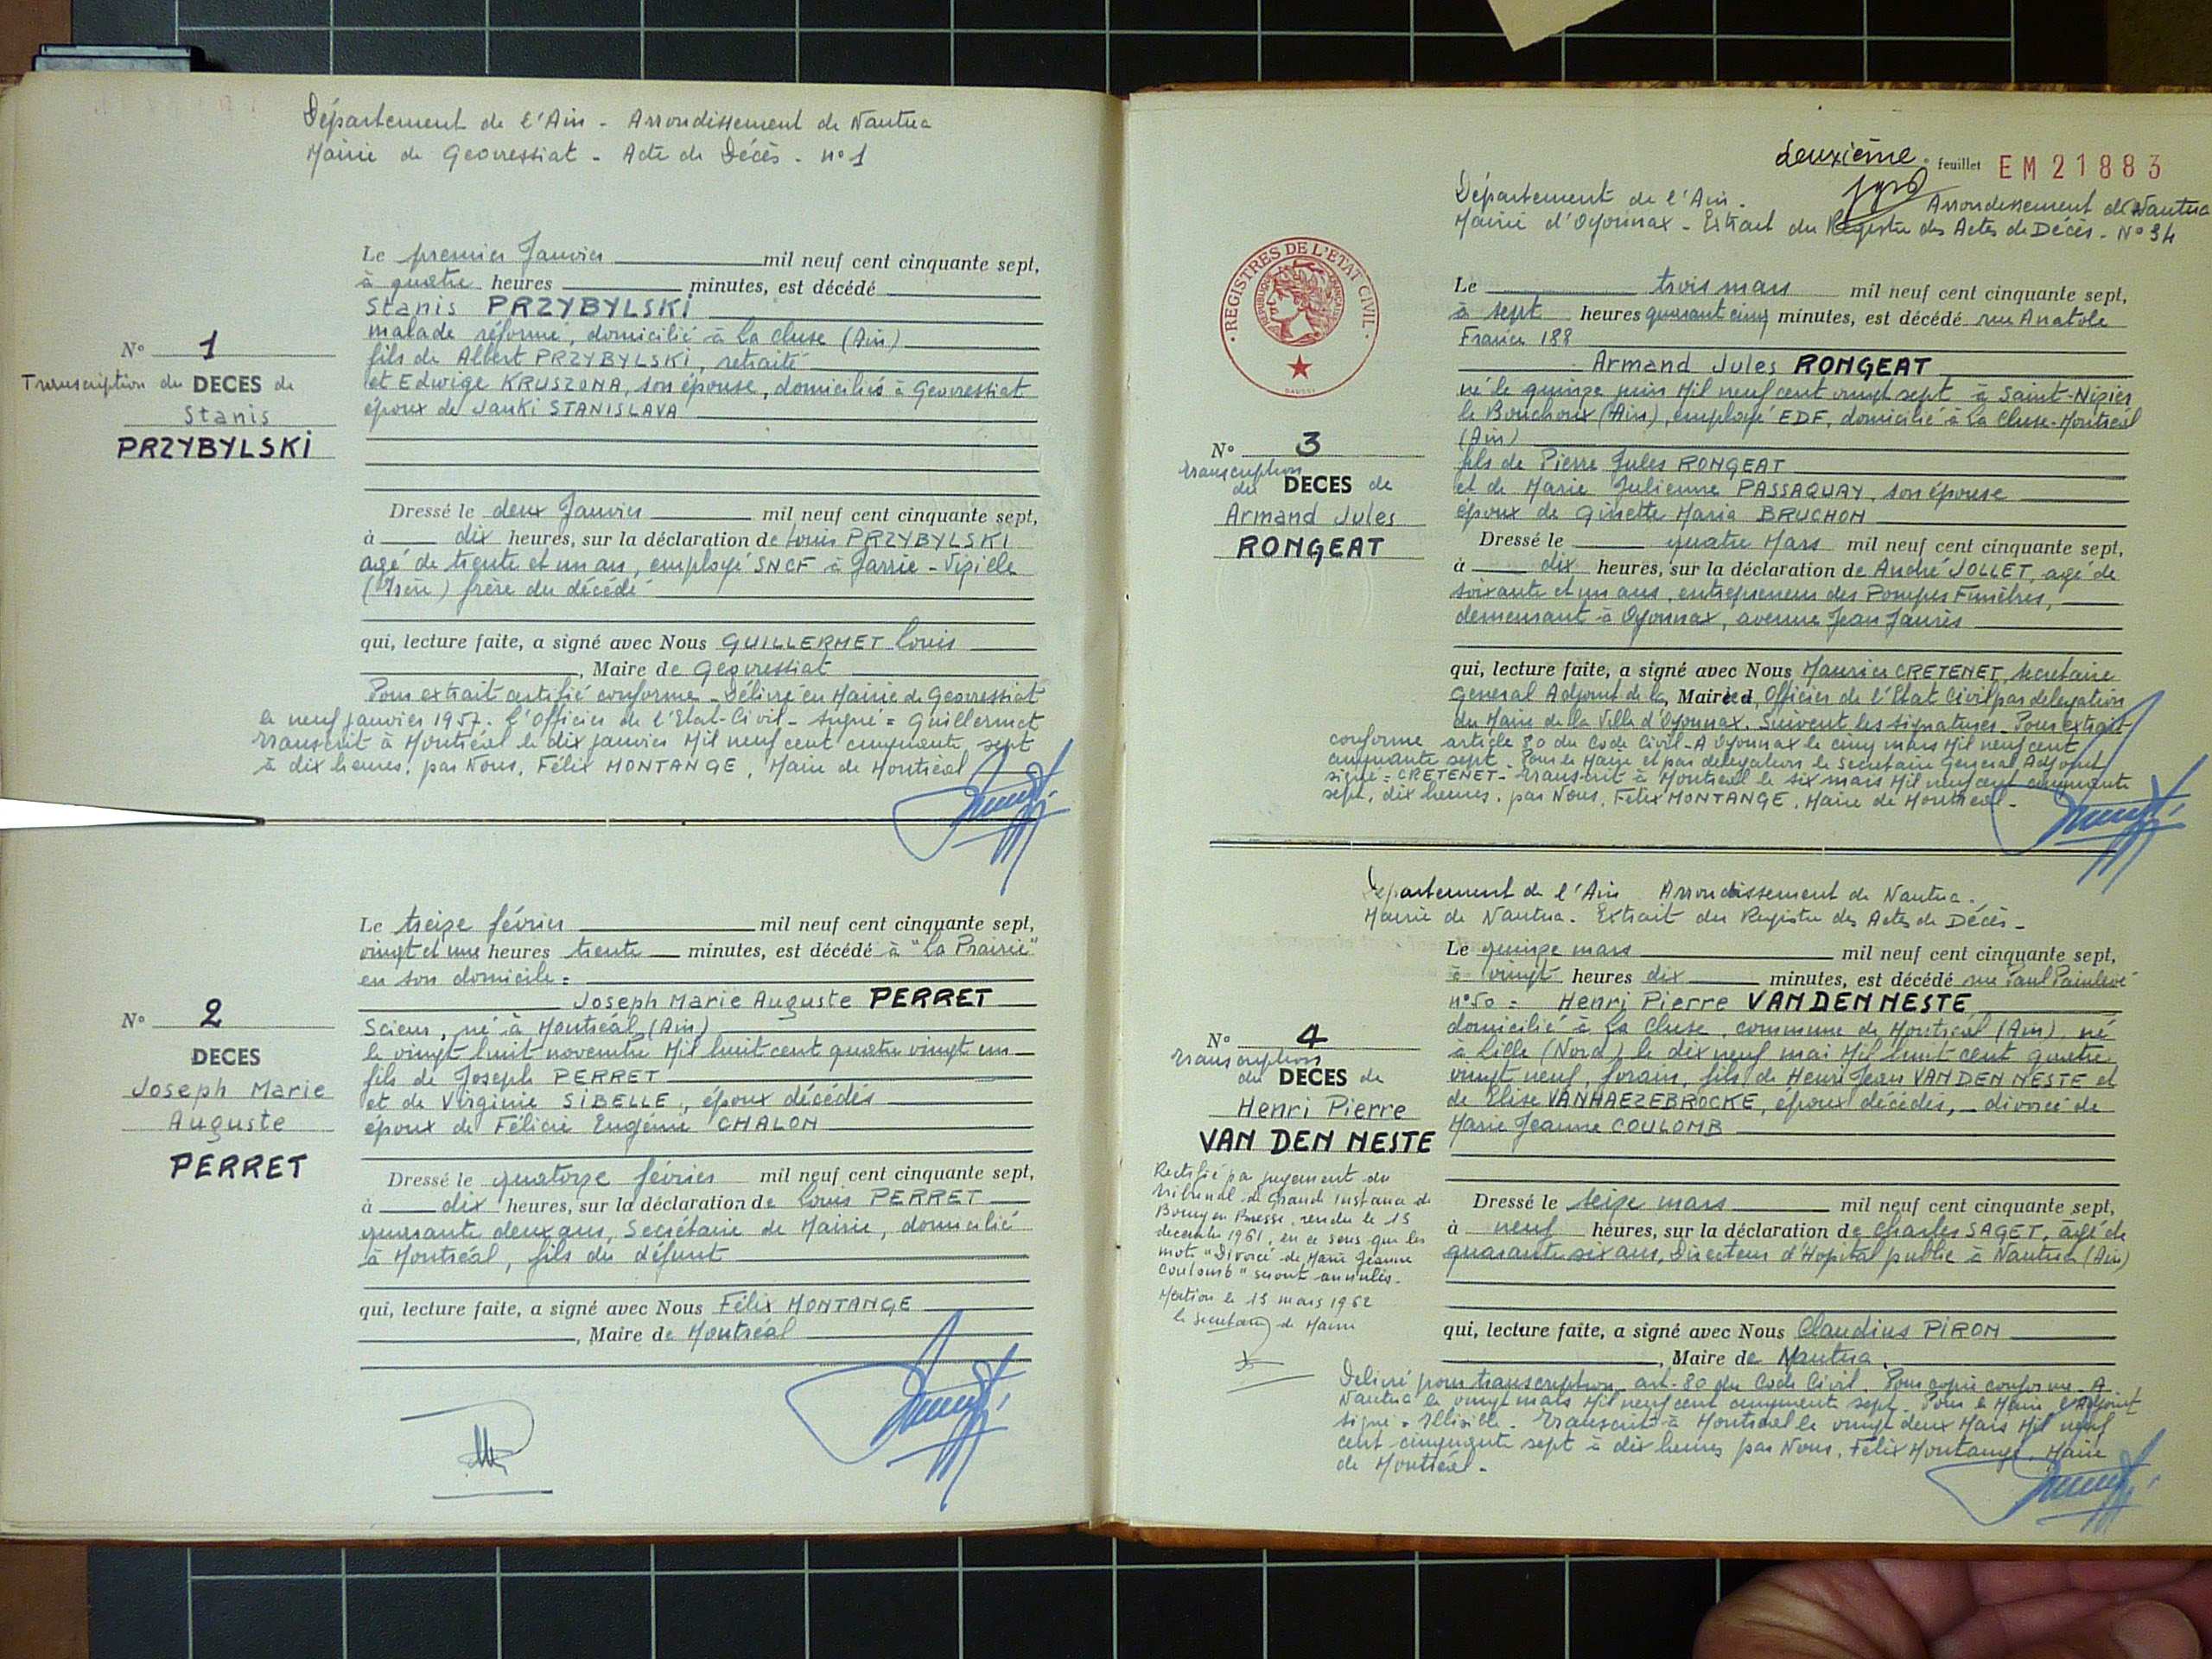 Département de l'Ain - Arrondissement de Nantua
Mairie de Geovressiat - Acte de Décès - n° 1
Le premier Janvier mil neuf cent cinquante sept,
à quatre heures minutes, est décédé
Stanis PRZYBYLSKI
malade réformé, domicilié à La Cluse (Ain)
fils de Albert PRZYBYLSKI, retraité
et Edwige KRUSZONA, son épouse, domiciliés à Geovressiat
époux de Janki STANISLAVA
N° 1
Transcription du DECES de
Stanis
PRZYBYLSKI
Dressé le deux Janvier mil neuf cent cinquante sept,
à dix heures, sur la déclaration de Louis PRZYBYLSKI
agé de trente et un an, employé SNCF à Jarrie-Vizille
(Isère) frère du décédé
qui, lecture faite, a signé avec Nous GUILLERMET Louis
, Maire de Geovressiat
Pour extrait certifié conforme - Délivré en Mairie de Geovressiat
le neuf janvier 1957. L'officier de l'Etat-Civil - signé = Guillermet
transcrit à Montréal le dix janvier Mil neuf cent cinquante sept
à dix heures, par Nous, Félix MONTANGE, Maire de Montréal
Le treize février mil neuf cent cinquante sept,
vingt et une heures trente minutes, est décédé à "La Prairie"
en son domicile =
Joseph Marie Auguste PERRET
Scieur, né à Montréal (Ain)
le vingt huit novembre Mil huit cent quatre vingt un
fils de Joseph PERRET
et de Virginie SIBELLE, époux décédés
époux de Félicie Eugénie CHALON
N° 2
DECES
Joseph Marie
Auguste
PERRET
Dressé le quatorze février mil neuf cent cinquante sept,
à dix heures, sur la déclaration de Louis PERRET
quarante deux ans, Secrétaire de Mairie, domicilié
à Montréal, fils du défunt
qui, lecture faite, a signé avec Nous Félix MONTANGE
, Maire de Montréal
deuxième feuillet EM 21883
Département de l'Ain - Arrondissement de Nantua
Mairie d'Oyonnax - Extrait du Registre des Actes de Décès - N° 34
REGISTRES DE L'ETAT CIVIL
Le trois mars mil neuf cent cinquante sept,
à sept heures quarant cinq minutes, est décédé rue Anatole
France 188
Armand Jules RONGEAT
né le quinze juin Mil neuf cent vingt sept à Saint-Nizier
le Bouchoux (Ain), employé EDF, domicilié à La Cluse-Montréal
(Ain)
fils de Pierre Jules RONGEAT
et de Marie Julienne PASSAQUAY, son épouse
époux de Ginette Maria BRUCHON
N° 3
transcription
du DECES de
Armand Jules
RONGEAT
Dressé le quatre Mars mil neuf cent cinquante sept,
à dix heures, sur la déclaration de André JOLLET, agé de
soixante et un ans, entrepreneur des Pompes Funèbres,
demeurant à Oyonnax, avenue Jean Jaurès
qui, lecture faite, a signé avec Nous Maurice CRETENET, secretaire
General Adjoint de la Mairie, Officier de l'Etat Civil par delegation
du Maire de la Ville d'Oyonnax. Suivent les signatures. Pour extrait
conforme article 80 du Code Civil - A Oyonnax le cinq mars Mil neuf cent
cinquante sept. Pour le Maire et par delegation le Secretaire General Adjoint
signé = CRETENET - transcrit à Montréal le six mars Mil neuf cent cinquante
sept, dix heures, par Nous, Félix MONTANGE, Maire de Montréal -
Département de l'Ain Arrondissement de Nantua.
Mairie de Nantua - Extrait du Registre des Actes de Décès -
Le quinze mars mil neuf cent cinquante sept,
à vingt heures dix minutes, est décédé rue Paul Painlevé
n° 50 = Henri Pierre VANDENNESTE
domicilié à La Cluse, commune de Montréal (Ain), né
à Lille (Nord) le dix neuf mai Mil huit cent quatre
vingt neuf, forain, fils de Henri Jean VANDENNESTE et
de Elise VANHAEZEBROCKE, époux décédés, - divorcé de
Marie Jeanne COULOMB
N° 4
transcription
du DECES de
Henri Pierre
VAN DEN NESTE
Rectifié par jugement du
tribunal de Grande Instance de
Bourg en Bresse, rendu le 15
decembre 1961, en ce sens que les
mots "Divorcé de Marie Jeanne
Coulomb" seront annulés.
Mention le 13 mars 1962
le secretaire de Mairie
Dressé le seize mars mil neuf cent cinquante sept,
à neuf heures, sur la déclaration de Charles SAGET, âgé de
quarante six ans, Directeur d'Hopital public à Nantua (Ain)
qui, lecture faite, a signé avec Nous Claudius PIRON
, Maire de Nantua.
Delivré pour transcription art. 80 du Code Civil. Pour copie conforme. A
Nantua le vingt mars Mil neuf cent cinquante sept. Pour le Maire l'Adjoint
signé = Illisible. Transcrit à Montréal le vingt deux Mars Mil neuf
cent cinquante sept à dix heures par Nous, Félix Montange, Maire
de Montréal -